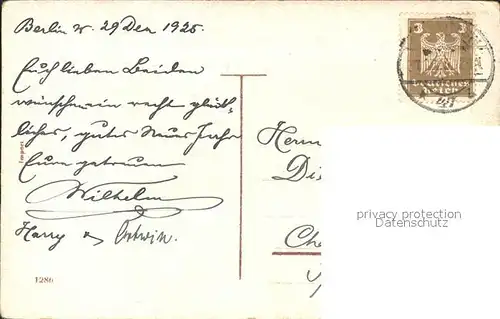 Berlin W. 29 Dez 1925
Euch lieben Beiden
wünschen ein recht glück-
liches, gutes Neues Jahr
Eure getreuen
Wilhelm
Harry & Ortwin.
Import
1286
3 3
Deutsches
Reich
Her
Di
Che
privacy protection
Datenschutz